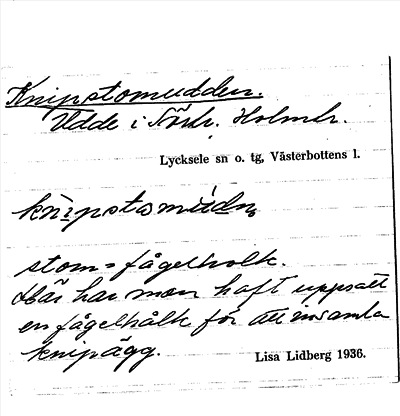 Knipstomudden.
Udde i Norr. Holmtr.
Lycksele sn o. tg, Västerbottens l.
stom = fågelholk.
Här har man haft uppsatt
en fågelhålk för att insamla
knipägg.
Lisa Lidberg 1936.